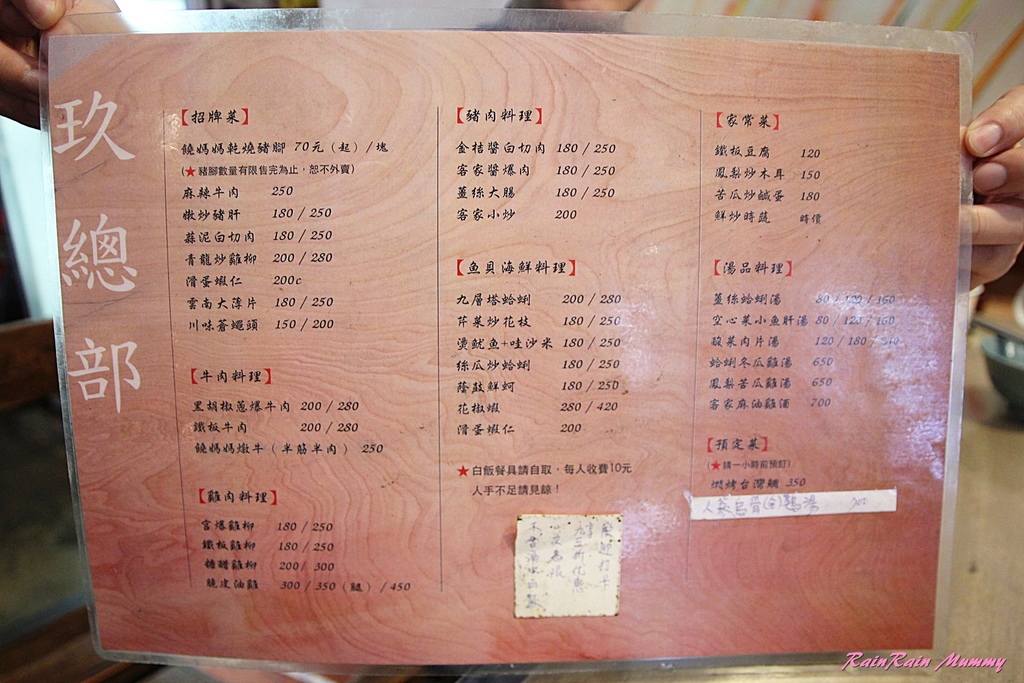 玖總部
【招牌菜】
饒媽媽乾燒豬腳 70元（起）/塊
（★豬腳數量有限售完為止，恕不外賣）
麻辣牛肉 250
嫩炒豬肝 180 / 250
蒜泥白切肉 180 / 250
青龍炒雞柳 200 / 280
滑蛋蝦仁 200c
雲南大薄片 180 / 250
川味蒼蠅頭 150 / 200
【牛肉料理】
黑胡椒蔥爆牛肉 200 / 280
鐵板牛肉 200 / 280
饒媽媽燉牛（半筋半肉） 250
【雞肉料理】
宮爆雞柳 180 / 250
鐵板雞柳 180 / 250
糖醋雞柳 200 / 300
脆皮油雞 300 / 350（腿）/ 450
【豬肉料理】
金桔醬白切肉 180 / 250
客家醬爆肉 180 / 250
薑絲大腸 180 / 250
客家小炒 200
【魚貝海鮮料理】
九層塔蛤蜊 200 / 280
芹菜炒花枝 180 / 250
燙魷魚+哇沙米 180 / 250
絲瓜炒蛤蜊 180 / 250
蔭鼓鮮蚵 180 / 250
花椒蝦 280 / 420
滑蛋蝦仁 200
★白飯餐具請自取，每人收費10元
人手不足請見諒！
【家常菜】
鐵板豆腐 120
鳳梨炒木耳 150
苦瓜炒鹹蛋 180
鮮炒時蔬 時價
【湯品料理】
薑絲蛤蜊湯 80 / 120 / 160
空心菜小魚肝湯 80 / 120 / 160
酸菜肉片湯 120 / 180 / 240
蛤蜊冬瓜雞湯 650
鳳梨苦瓜雞湯 650
客家麻油雞酒 700
【預定菜】
（★請一小時前預訂）
燜烤台灣鯛 350
人蔘烏骨(全)雞湯
RainRain Mummy